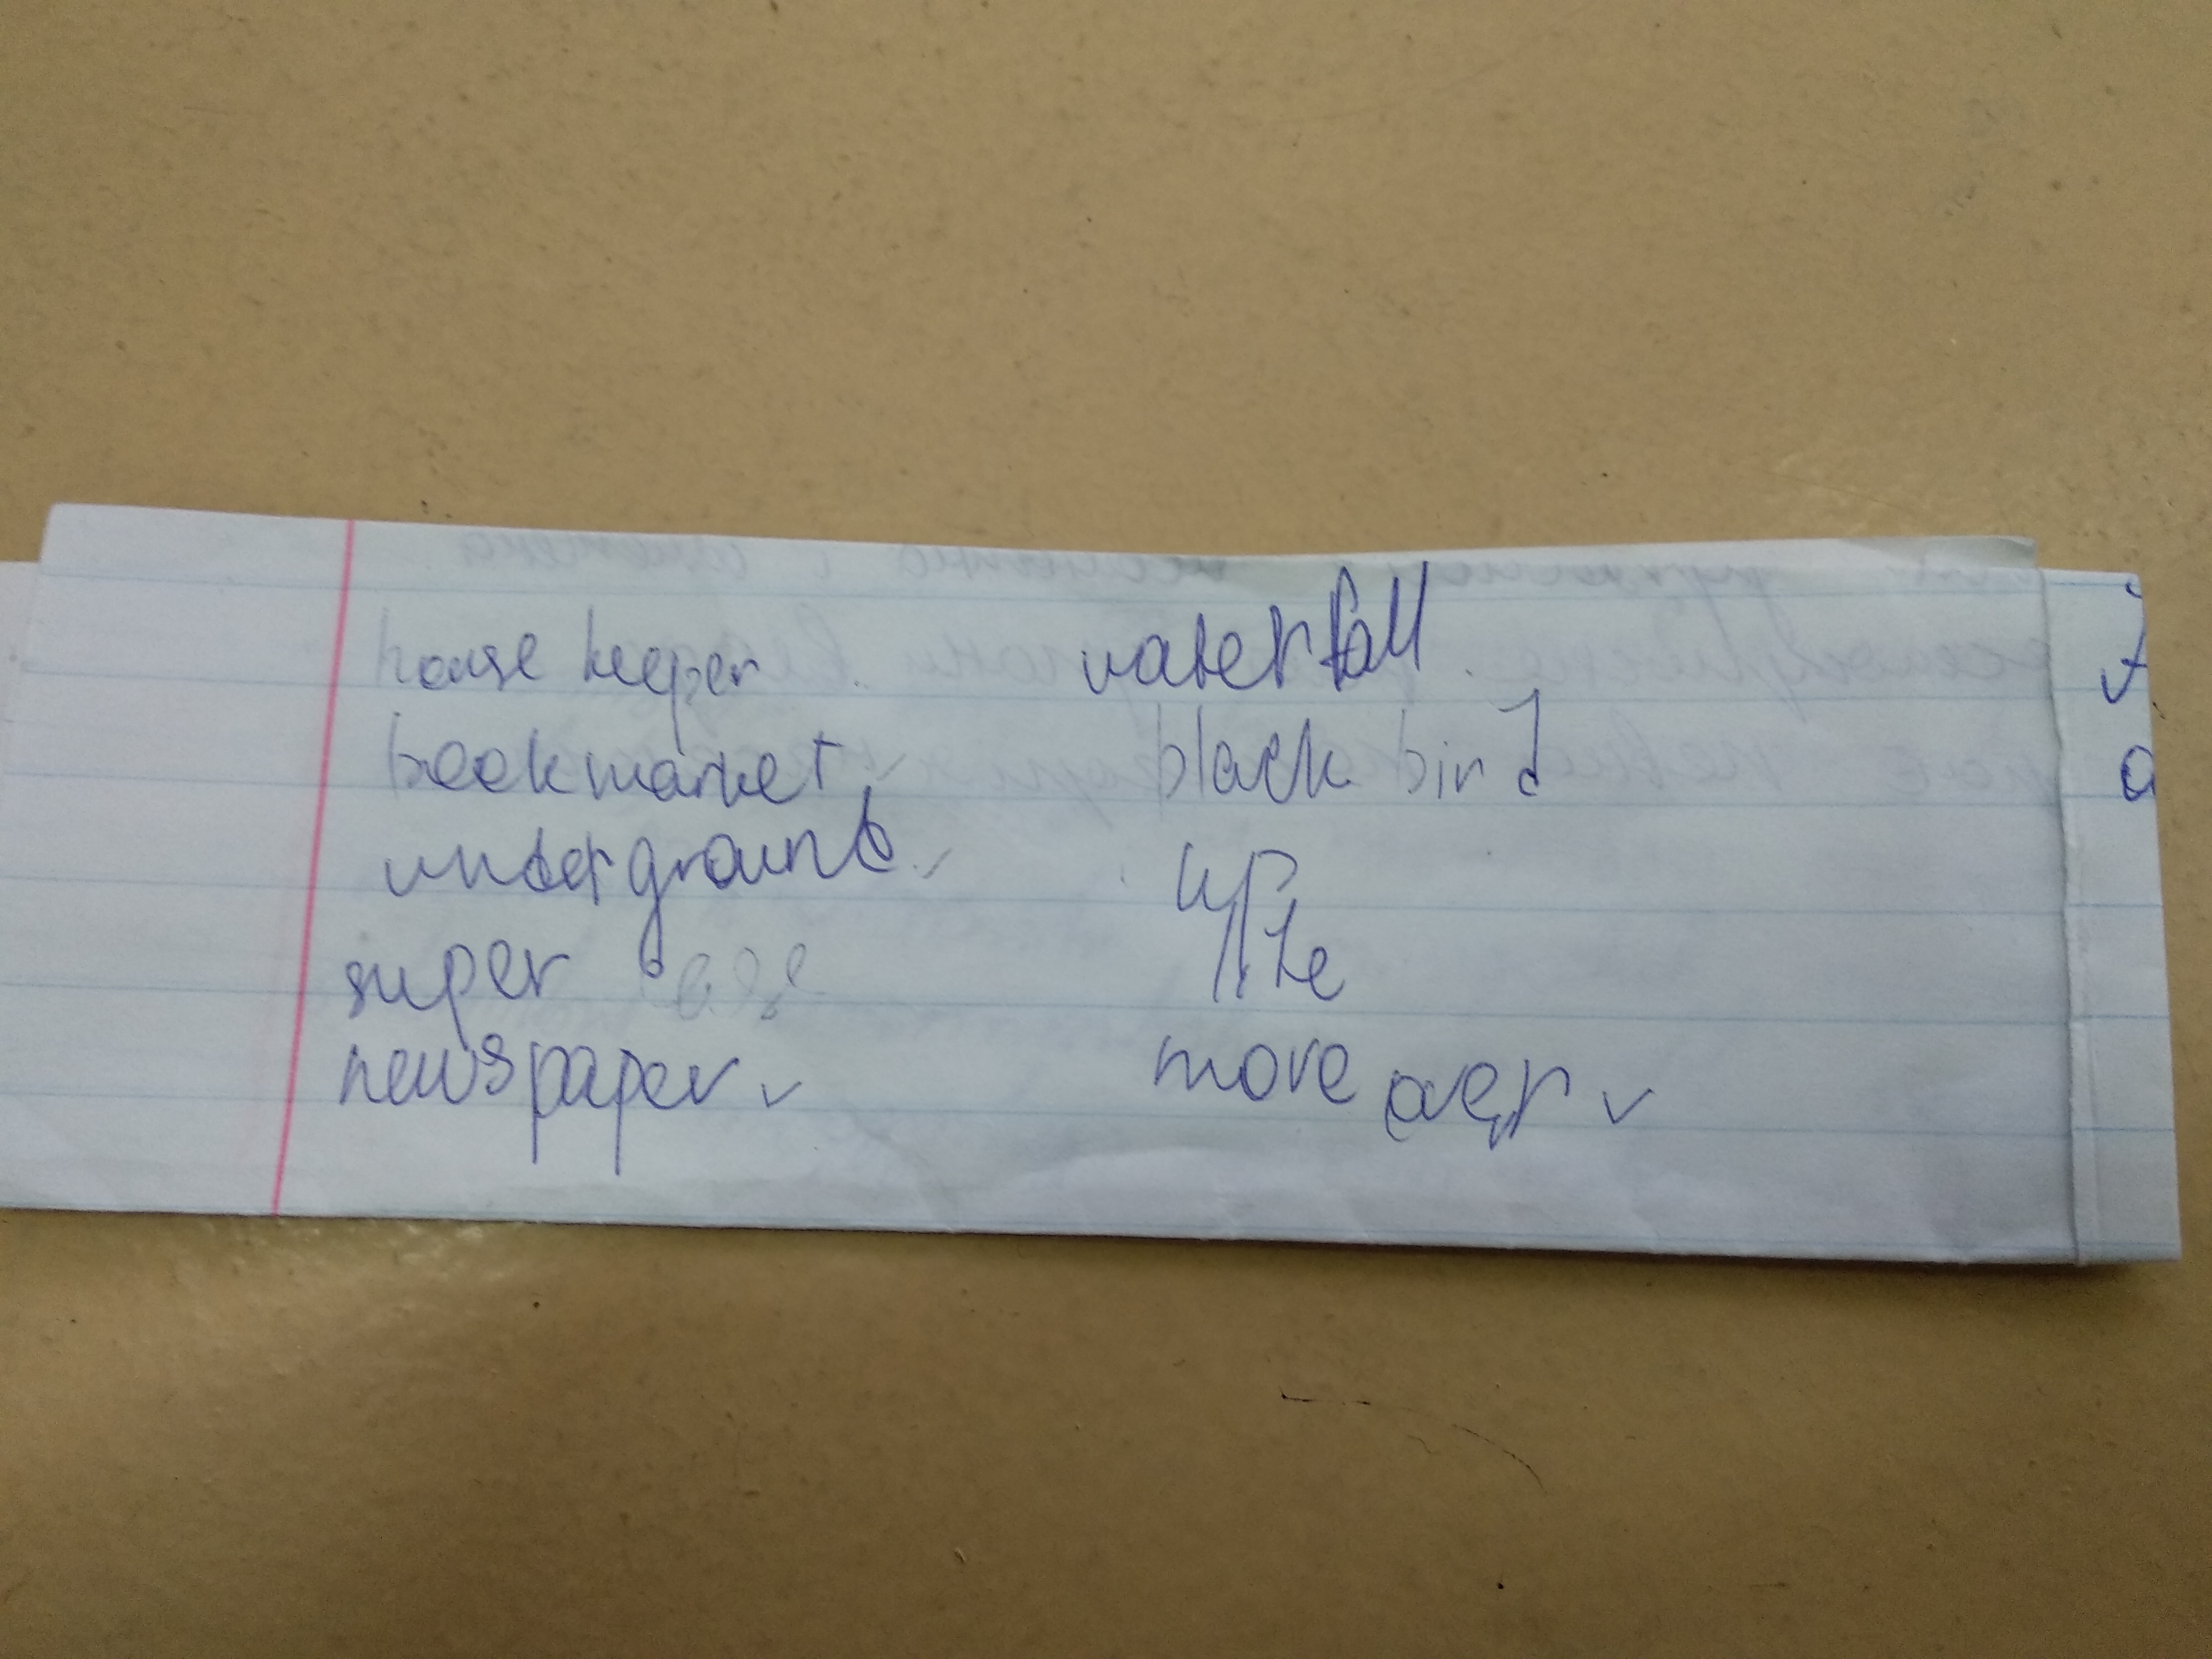 house keeper
bookmarket
underground
super
newspaper
waterfall
black bird
up
more over